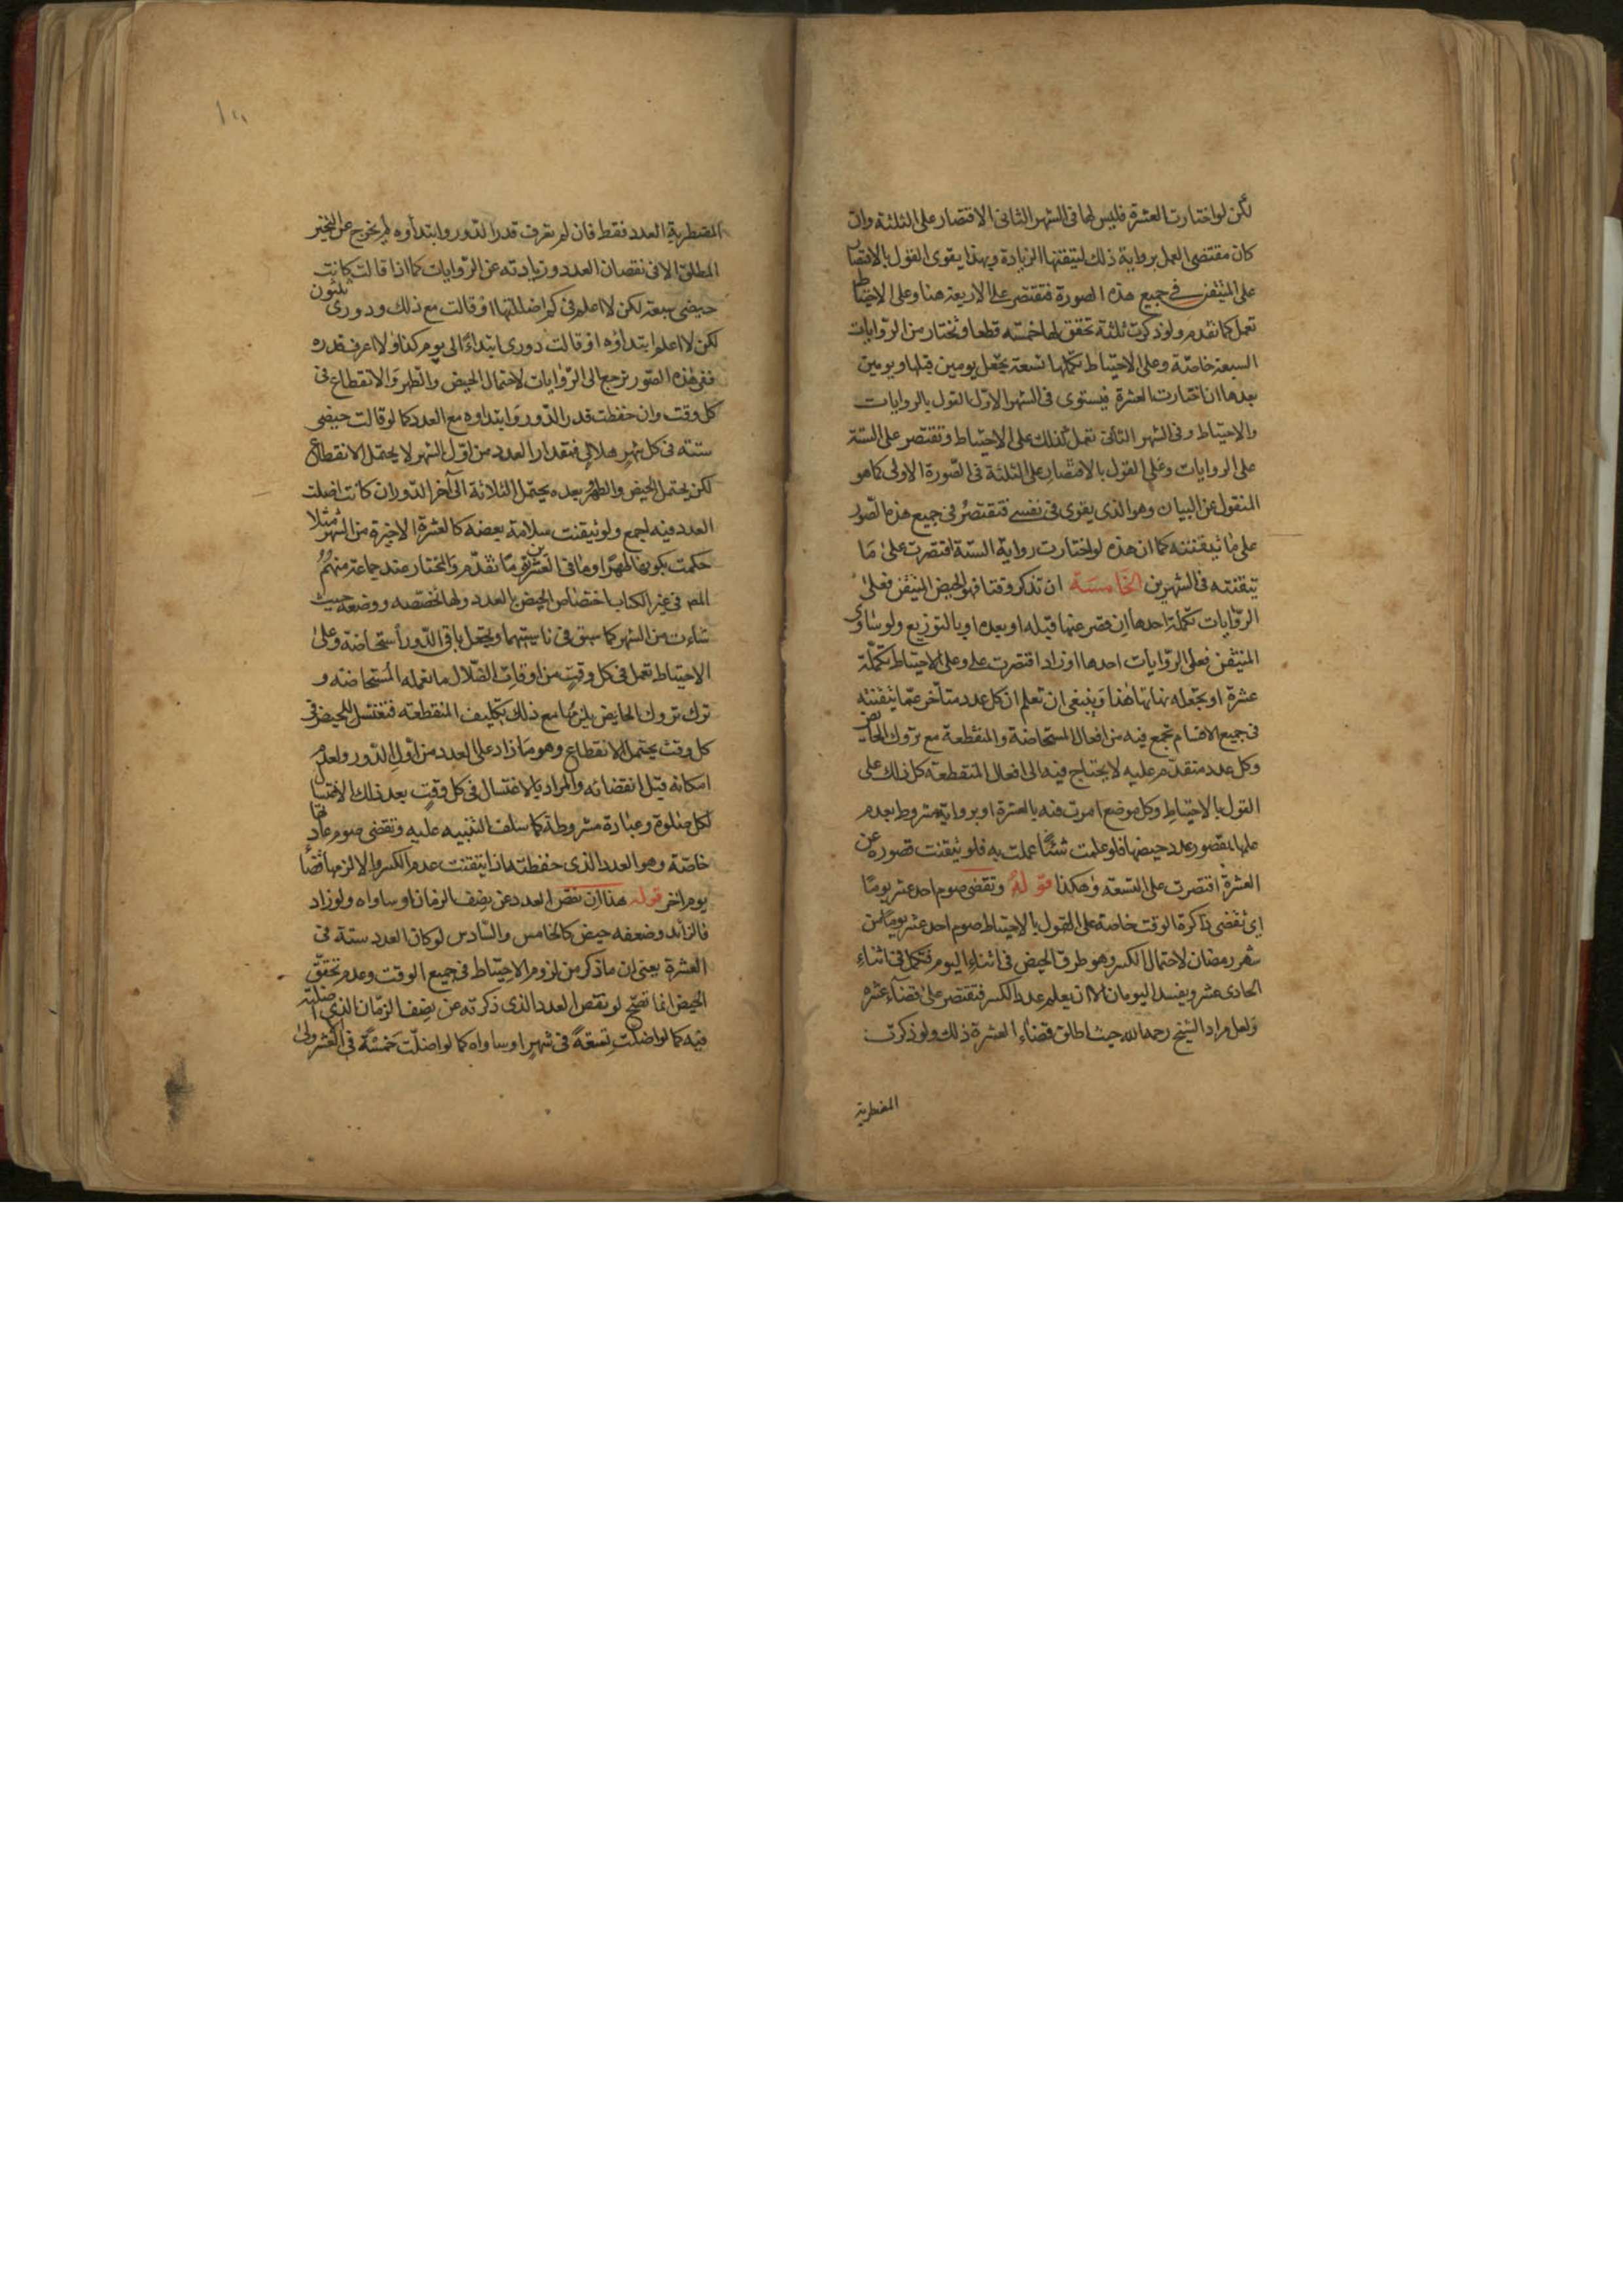 لكن لو اختارت العشرة فليس لها فى الشهر الثانى الاقتصار على الثلثة وان
كان مقتضى العمل برواية ذلك لتيقنها الزيادة وبهذا يقوى القول بالاقتصار
على المتيقن فى جميع هذه الصورة فتقتصر على الاربعة هنا وعلى الاحتياط
تعمل كما تقدم ولو ذكرت ثلثة تحقق لها خمسة قطعا وتختار من الروايات
السبعة خاصة وعلى الاحتياط تكملها تسعة بجعل يومين قبلها ويومين
بعدها ان اختارت العشرة فيستوى فى الشهر الاول القول بالروايات
والاحتياط وفى الشهر الثانى تعمل كذلك على الاحتياط وتقتصر على الستة
على الروايات وعلى القول بالاقتصار على الثلثة فى الصورة الاولى كما هو
المنقول عن البيان وهو الذى يقوى فى نفسى فتقتصر فى جميع هذه الصور
على ما تيقنته كما ان هذه لو اختارت رواية الستة اقتصرت على ما
تيقنته فى الشهرين الخامسة ان تذكر وقتا فهو الحيض المتيقن فعلى
الروايات تكملة احدها ان قصر عنها قبله او بعده او بالتوزيع ولو ساوى
المتيقن فعلى الروايات احدها او زاد اقتصرت عليه وعلى الاحتياط تكملة
عشرة او تجعله نهايتها هذا وينبغى ان تعلم ان كل عدد متأخر عما تيقنته
فى جميع الاقسام تجمع فيه من افعال المستحاضة والمنقطعة مع تروك الحائض
وكل عدد متقدم عليه لا يحتاج فيه الى افعال المنقطعة كل ذلك على
القول بالاحتياط وكل موضع امرت فيه بالعشرة او برواية مشروط بعدم
علمها بقصور عدد حيضها فلو علمت شيئا عملت به فلو تيقنت قصوره عن
العشرة اقتصرت على التسعة وهكذا قوله وتقضى صوم احد عشر يوما
اى تقضى ذاكرة الوقت خاصة على القول بالاحتياط صوم احد عشر يوما من
شهر رمضان لاحتمال الكسر وهو طرق الحيض فى اثناء اليوم فتكمل فى اثناء
الحادى عشر ويفسد اليومان الا ان يعلم عدم الكسر فتقتصر على قضاء عشره
ولعل مراد الشيخ رحمه الله حيث اطلق قضاء العشرة ذلك ولو ذكرت
المضطربة
المضطربة العدد فقط فان لم تعرف قدر الدور وابتداوه لم تخرج عن التحير
المطلق الا فى نقصان العدد وزيادته عن الروايات كما اذا قالت كانت
حيضى سبعة لكن لا اعلم فى كم اضللتها او قالت مع ذلك ودورى ثلثون
لكن لا اعلم ابتداؤه او قالت دورى ابتداؤ الى يوم كذا ولا اعرف قدره
ففى هذه الصور ترجع الى الروايات لاحتمال الحيض والطهر والانقطاع فى
كل وقت وان حفظت قدر الدور وابتداوه مع العدد كما لو قالت حيضى
ستة فى كل شهر هلالى فمقدار العدد من اول الشهر لا يحتمل الانقطاع
لكن يحتمل الحيض والطهر بعده يحتمل الثلاثة الى آخر الدور ان كانت اضلت
العدد فيه اجمع ولو تيقنت سلامة بعضه كالعشرة الاخيرة من الشهر مثلا
حكمت بكونها طهرا وما فى العشرين كما تقدم والمختار عند جماعة منهم
المص فى غير الكتاب اختصاص الحيض بالعدد ولها تخصصه ووضعه حيث
شاءت من الشهر كما سبق فى ناسيتهما وتجعل باقى الدور استحاضة وعلى
الاحتياط تعمل فى كل وقت من اوقات الضلال ما تعمله المستحاضة و
ترك تروك الحايض يلزمها مع ذلك تكليف المنقطعة فتغتسل للحيض فى
كل وقت يحتمل الانقطاع وهو ما زاد على العدد من اول الدور ولعدم
امكانه قبل انقضائه والمراد بالاغتسال فى كل وقت بعد ذلك الاغتسال
لكل صلوة وعبادة مشروطة كما سلف التنبيه عليه وتقضى صوم عادتها
خاصة وهو العدد الذى حفظته اذا تيقنت عدم الكسر والا لزمها قضاء
يوم اخر قوله هذا ان نقص العدد عن نصف الزمان او ساواه ولو زاد
فالزائد وضعفه حيض كالخامس والسادس لو كان العدد ستة فى
العشرة يعنى ان ما ذكر من لزوم الاحتياط فى جميع الوقت وعدم تحقق
الحيض انما تصح لو نقص العدد الذى ذكرته عن نصف الزمان الذى اضلته
فيه كما لو اضلت تسعة فى شهر او ساواه كما لو اضلت خمسة فى العشر الاولى